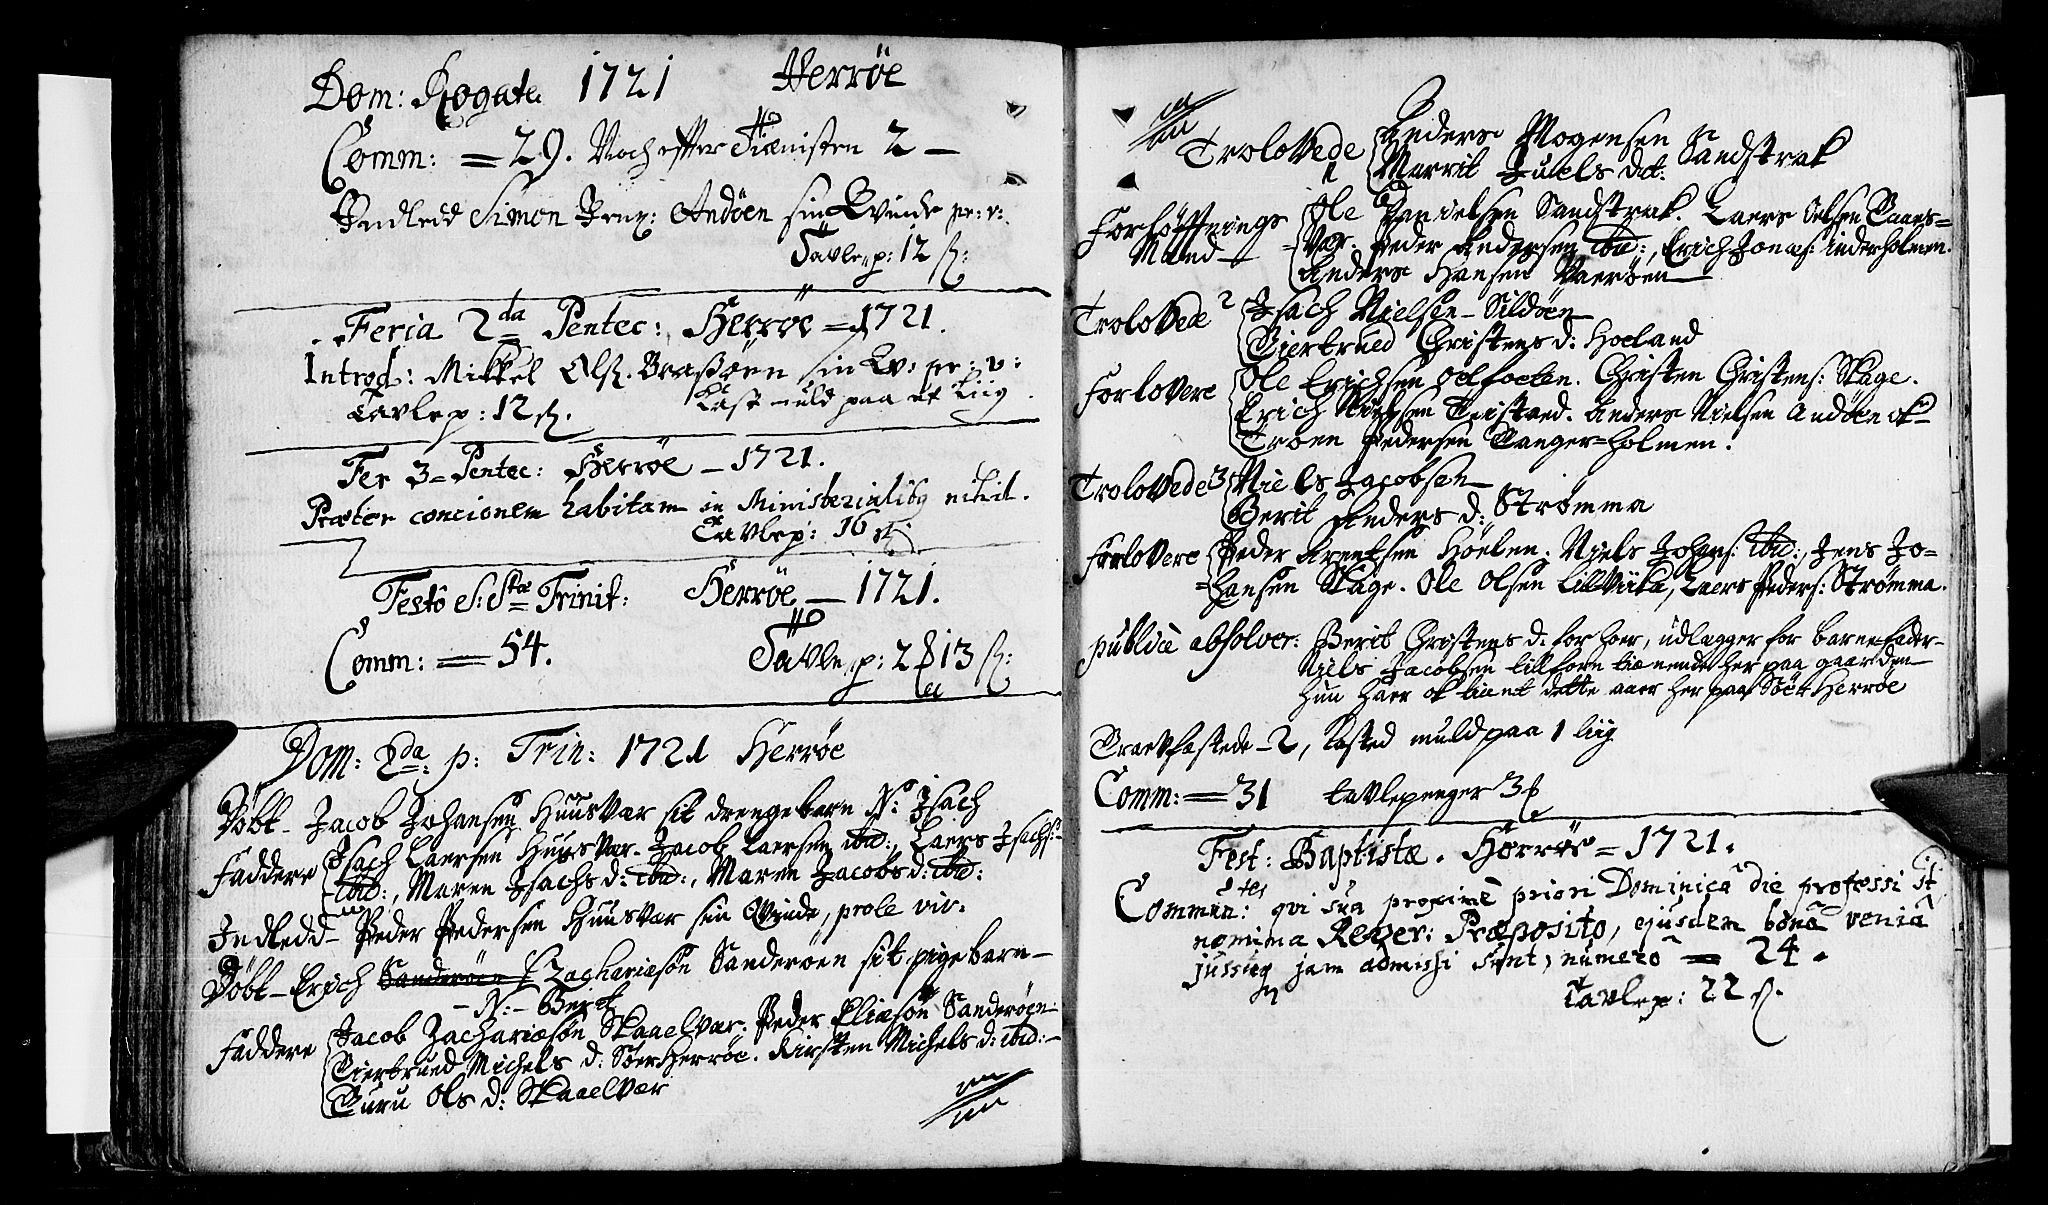 Dom: Rogate 1721 Herröe
Comm: = 29. Noch effter Tiænisten 2 —
Indledd Simon Andöen sin Qvinde pr: v:
Tavle p: 12 ſ:
Feria 2da Pentec: Herröe = 1721.
Introd: Mikkel Olſ. Braßöen sin Qv: pr: v:
Tavlep: 12 ſ. Cast muld paa et liig.
Fer 3= Pentec: Herröe — 1721.
Præter concionem habitam in Ministerialibq nihil.
Tavlep: 16 ſ:
Festô S: Stæ Trinit: Herröe — 1721.
Comm: = 54. Tavle p: 2 13 ſ:
Dom: 2da: p: Trin: 1721 Herröe
Döbt — Jacob Johansen Huusvær sit drengebarn N: Isach
Faddere Isach Laersen Huusvær. Jacob Laersen ibid:, Laers Isachs:
ibid:, Maren Isachs d: ibid:, Maren Jacobs d: ibid:
Indledd — Peder Pedersen Huusvær sin Qvinde, prole viv.
Döbt — Erich Sanderöen Zachariæsön Sanderöen sit pigebarn —
— N: — Berit
Faddere Jacob Zachariæsön Skaaelvær. Peder Eliæsön Sanderöen
Giertrued Michels d: Söer Herröe. Kirsten Michels d: ibid: —
Guru Ols d: Skaaelvær
Trolovede 1 Anders Mogensen
Marrit Juels dat: Sandstrak
Forlöffnings Ole Danielsen Sandstrak. Laers Oelsen
Mænd — Vær. Peder Andersen ibid:, Erich Jonæs: Tinderholmen.
Anders Hansen Væröen —
Trolovede 2 Isach Nielsen — Sildöen
Giertrued Christens d: Hoeland
Forlovere Ole Erichsen Christen Christens: Skage.
Erich Nielsen Anders Nielsen Andöen ok
Troen Pedersen Tangerholmen.
Trolovede 3 Niels Jacobsen —
Berit Anders d: Strømma
Forlovere Peder Arentsen Höelen. Niels Johans: ibid:, Jens Jo=
=hansen Skage. Ole Olsen Lillviika, Laers Peders: Strømma.
publicè absolver: Berit Christens d. for hoer, udlægger for barnefader
Niels Jacobsen tillforn tiænende her paa gaarden
hun haer ok tiænt dette aaer her paa Söer Herröe
Graevfæstede — 2, Casted muld paa 1 liig
Comm: = 31 tavlepenger 3
Fest: Baptistæ. Herröe = 1721.
Commun:tes qvi sua proximè priori Dominicâ die professi st
nomina Rever: Præposito, ejusdem bonâ veniâ
jussuq jam admissi sunt, numerô = 24.
Tavlep: 22 ſ.